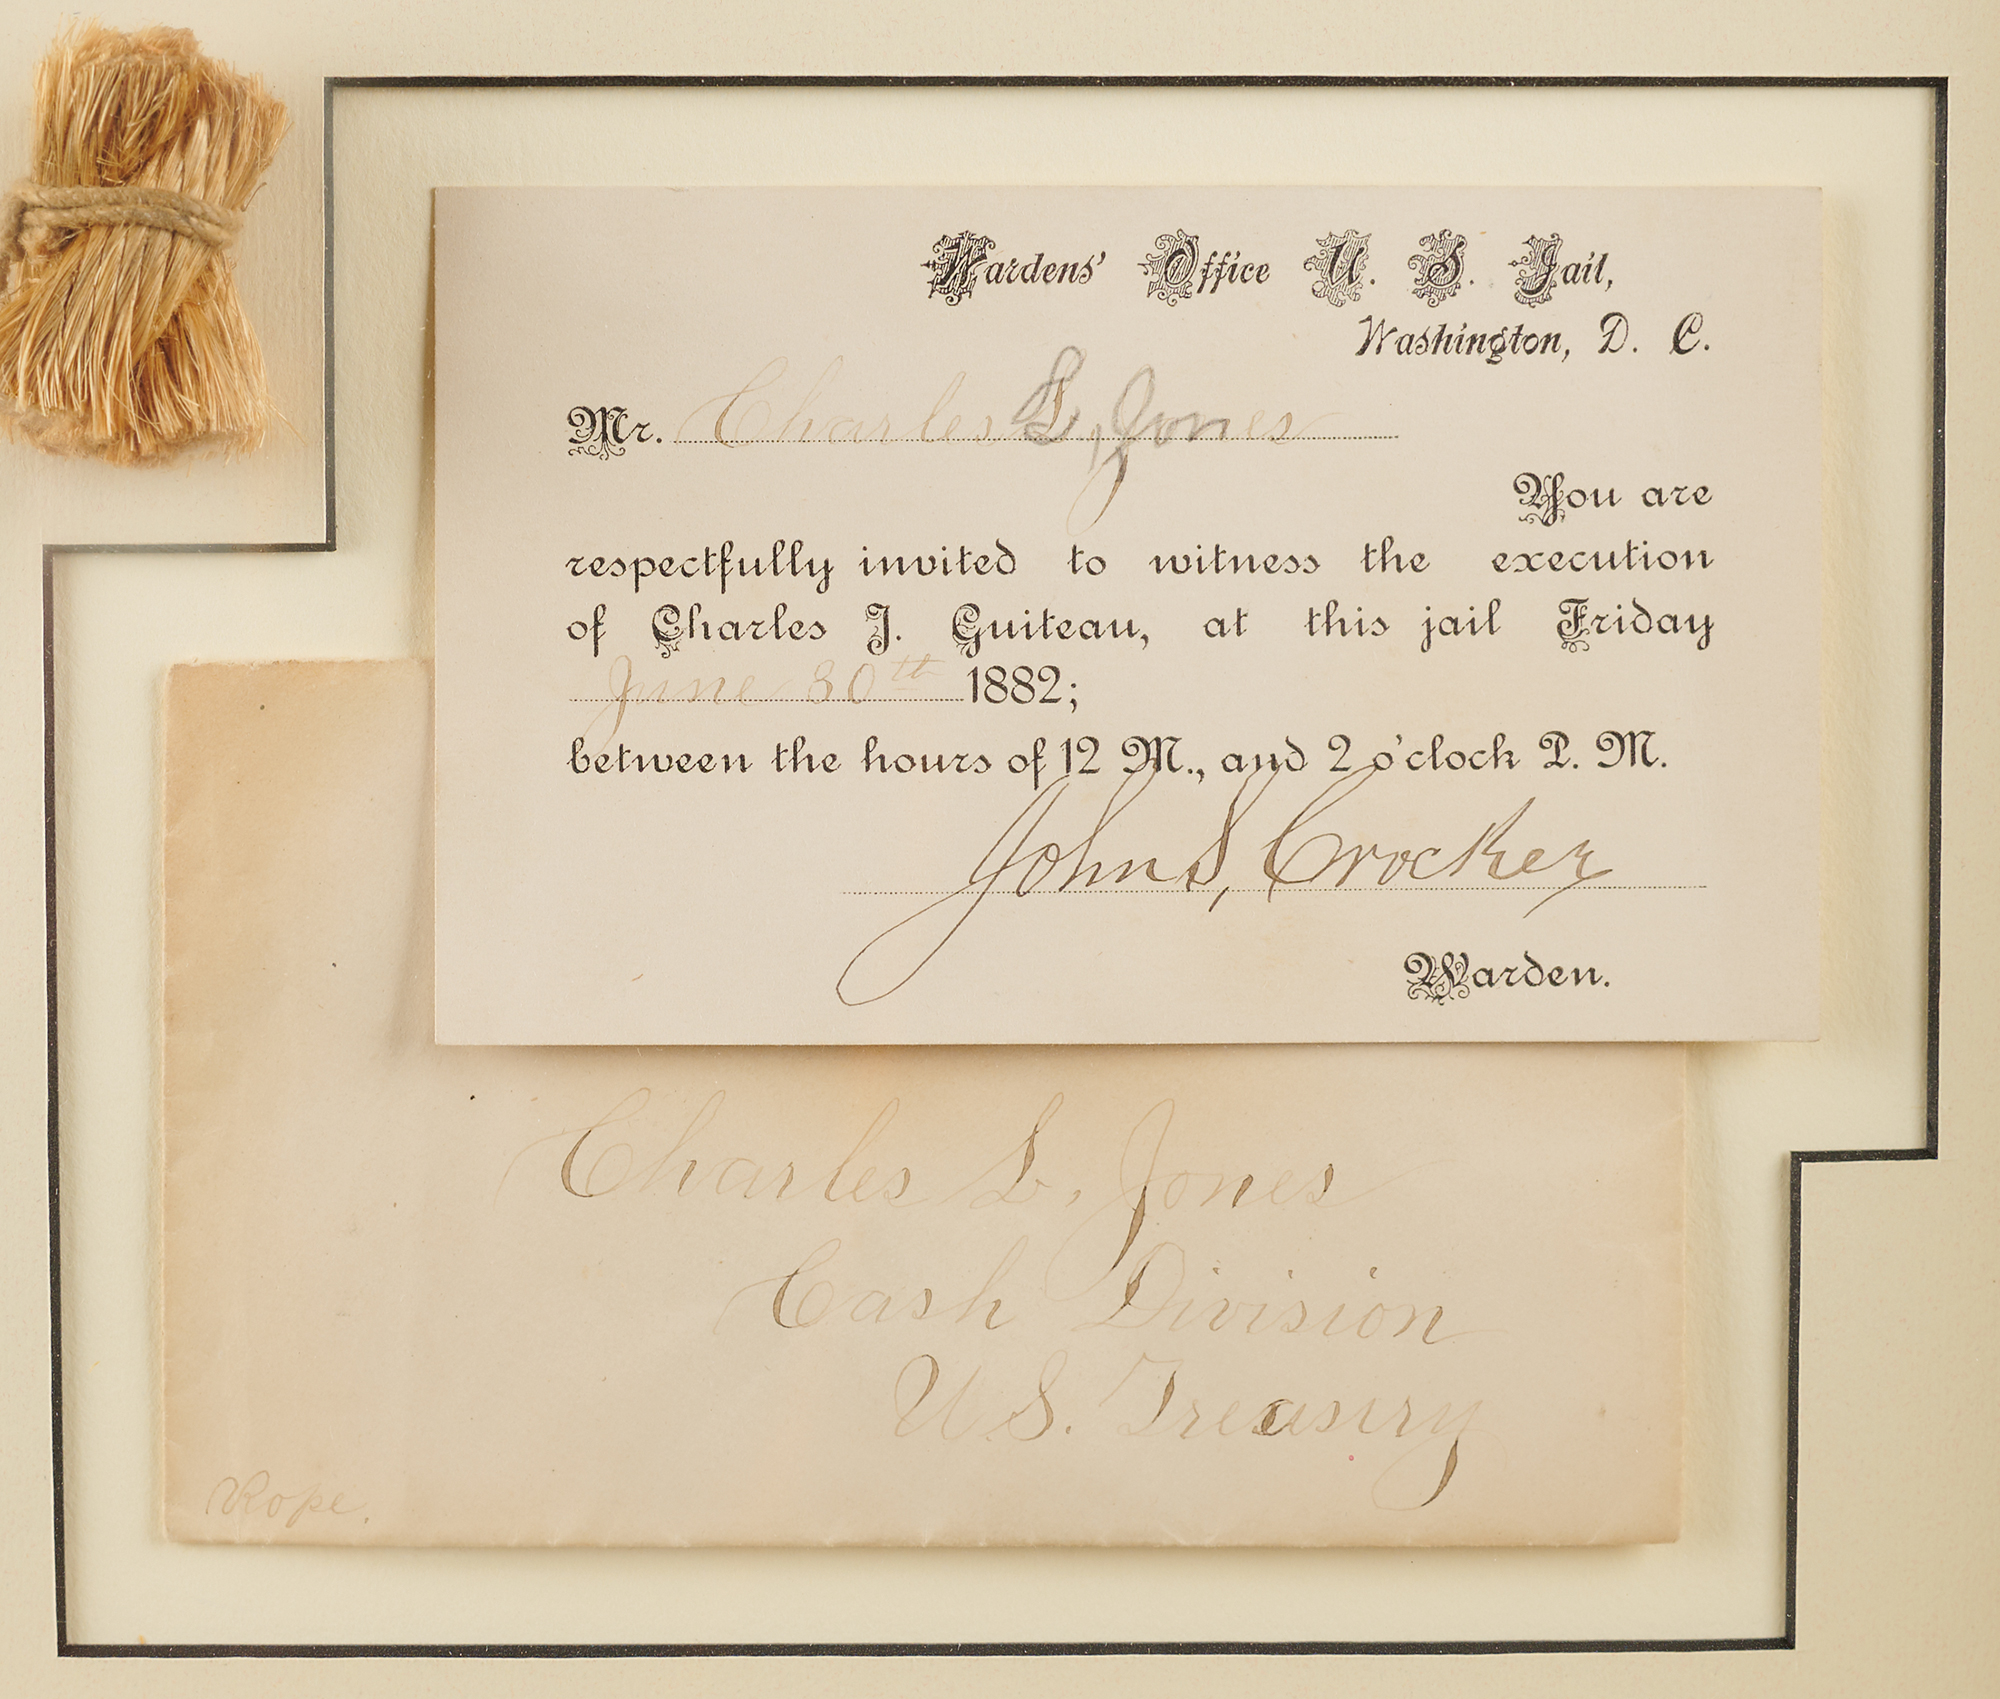 Wardens' Office U. S. Jail,
Washington, D. C.
Mr. Charles L, Jones
You are
respectfully invited to witness the execution
of Charles J. Guiteau, at this jail Friday
June 30th 1882;
between the hours of 12 M., and 2 o'clock P. M.
John S, Crocker
Warden.
Charles L. Jones
Cash Division
U S. Treasury
Rope.